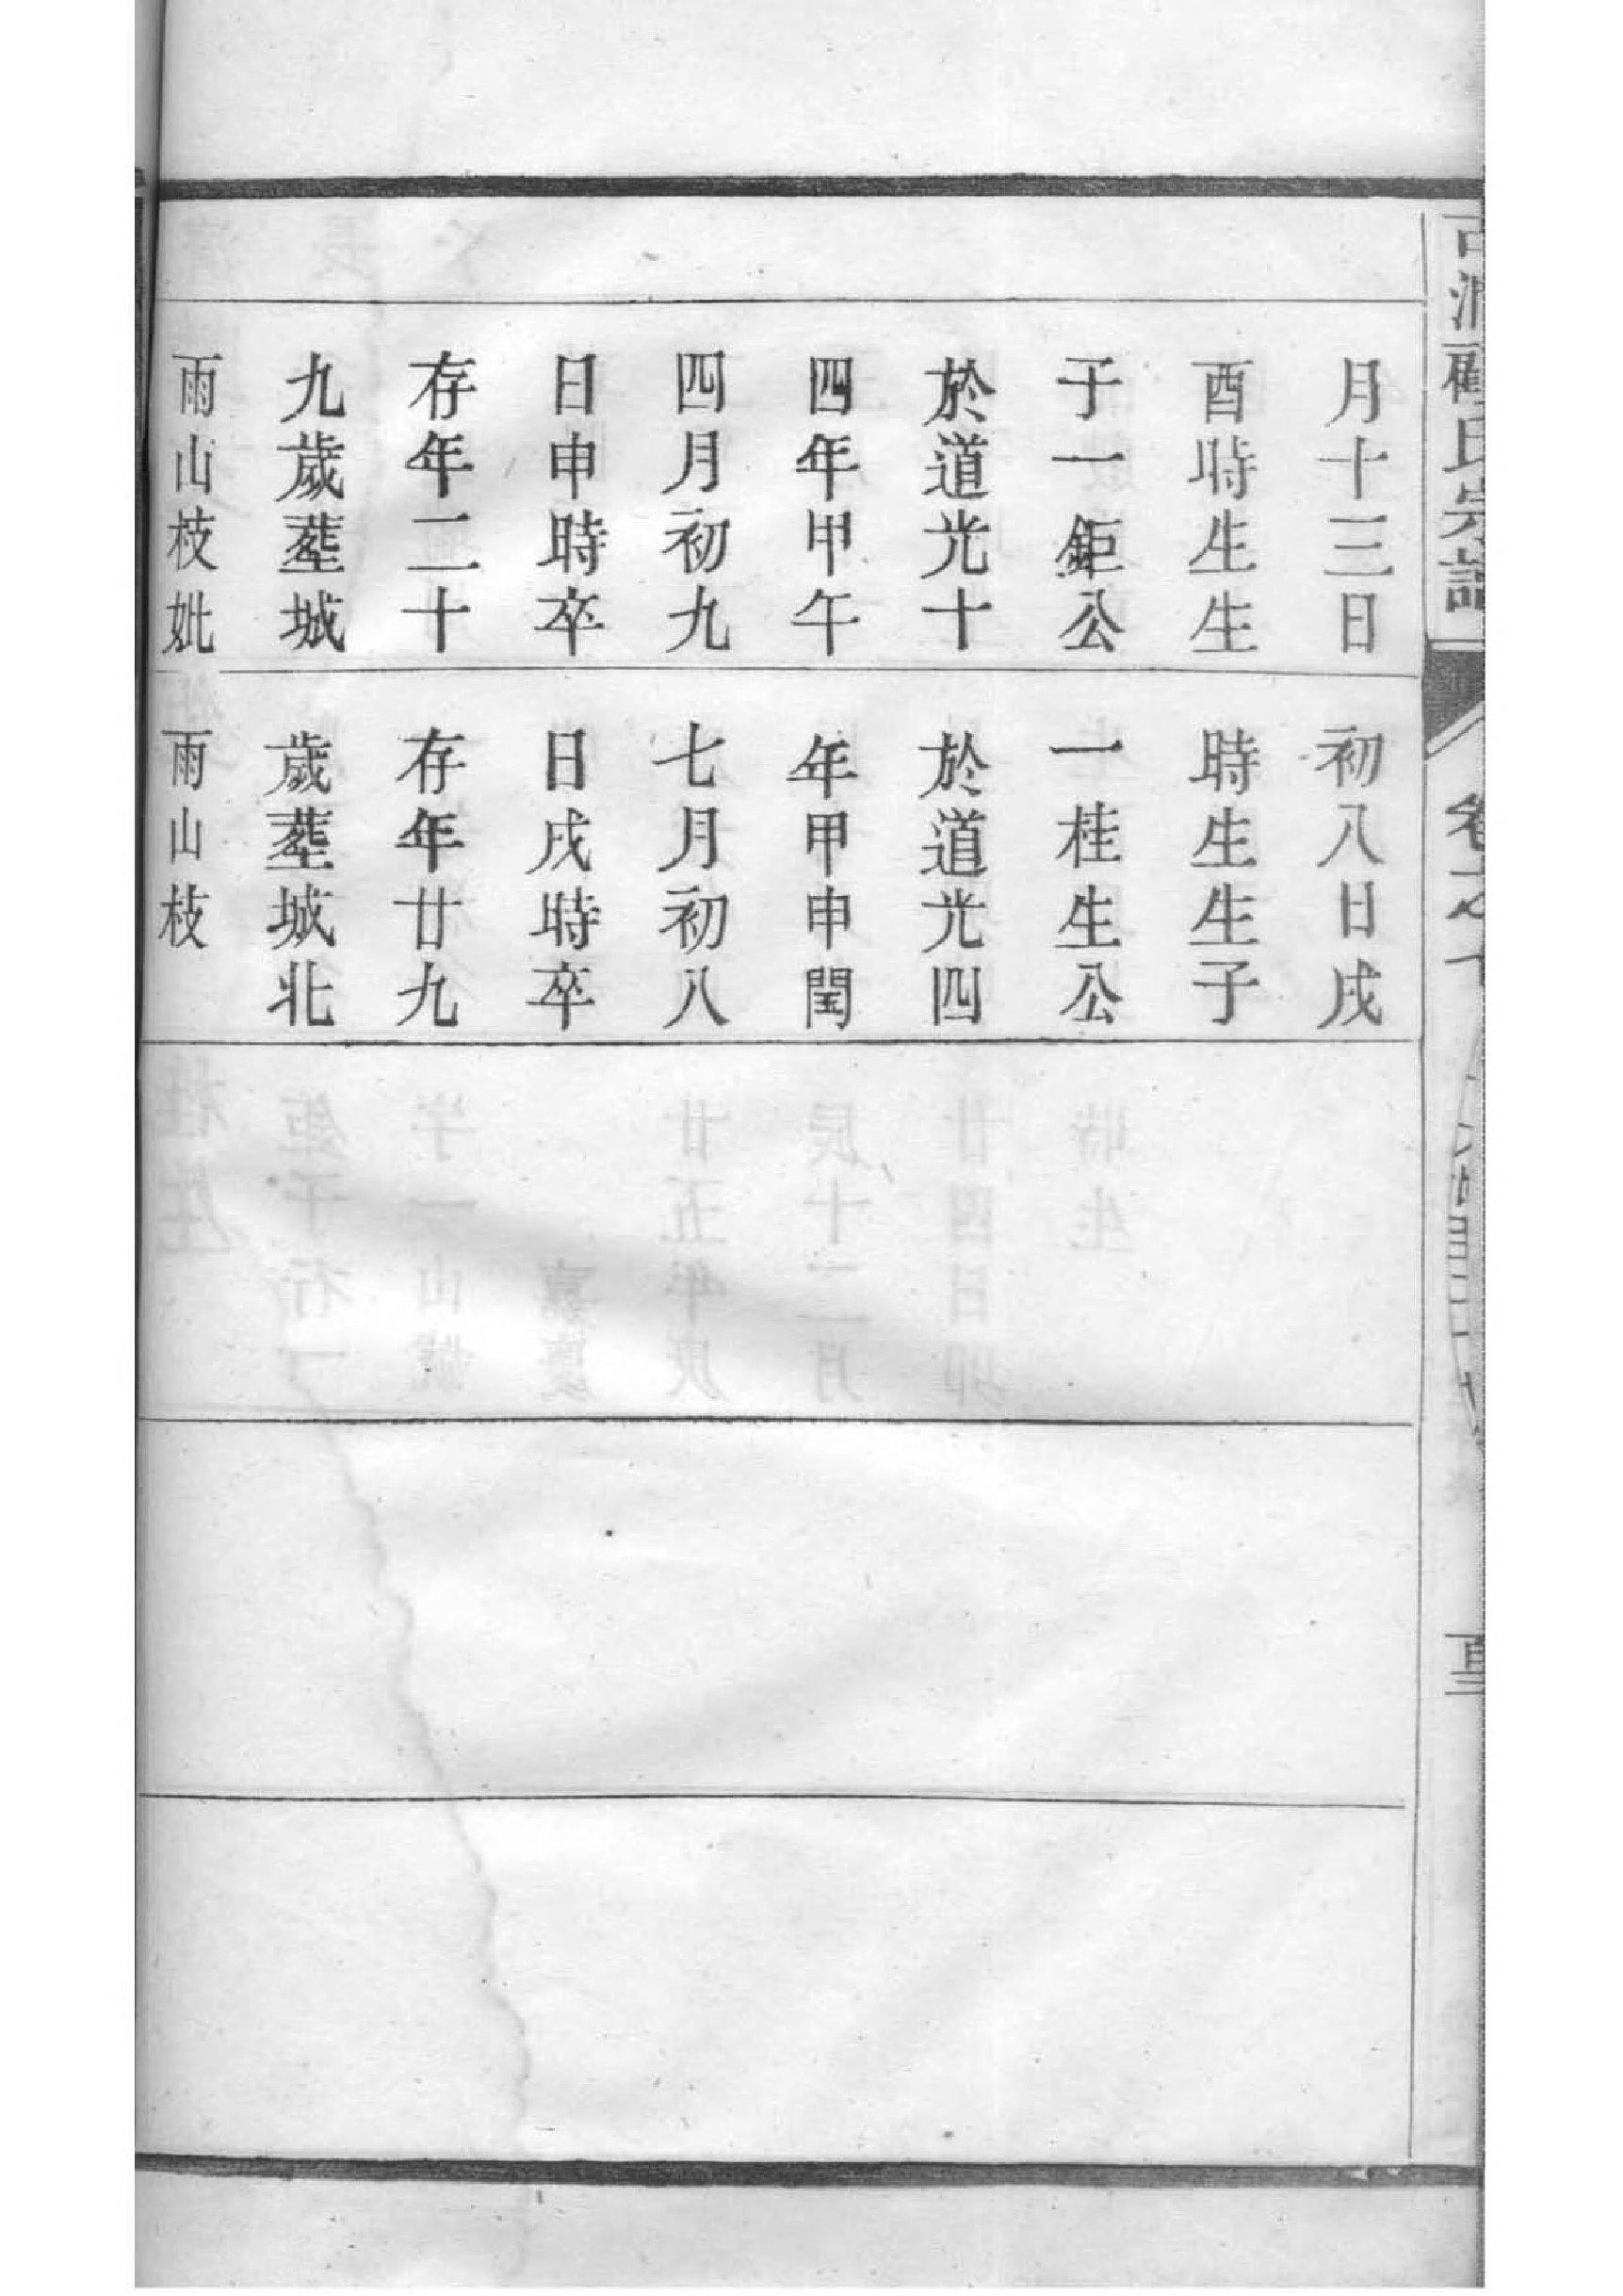 氏宗譜
卷之十
月十三日
酉時生生
于一鉅公
於道光十
四年甲午
四月初九
日申時卒
存年二十
九歲塟城
雨山枝妣
初八日戌
時生生子
一桂生公
於道光四
年甲申閏
七月初八
日戌時卒
存年廿九
歲塟城北
雨山枝